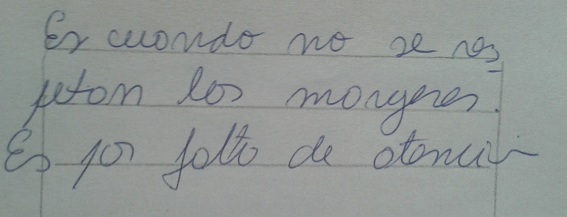 Es cuando no se res-
petan los margenes.
Es por falta de atención